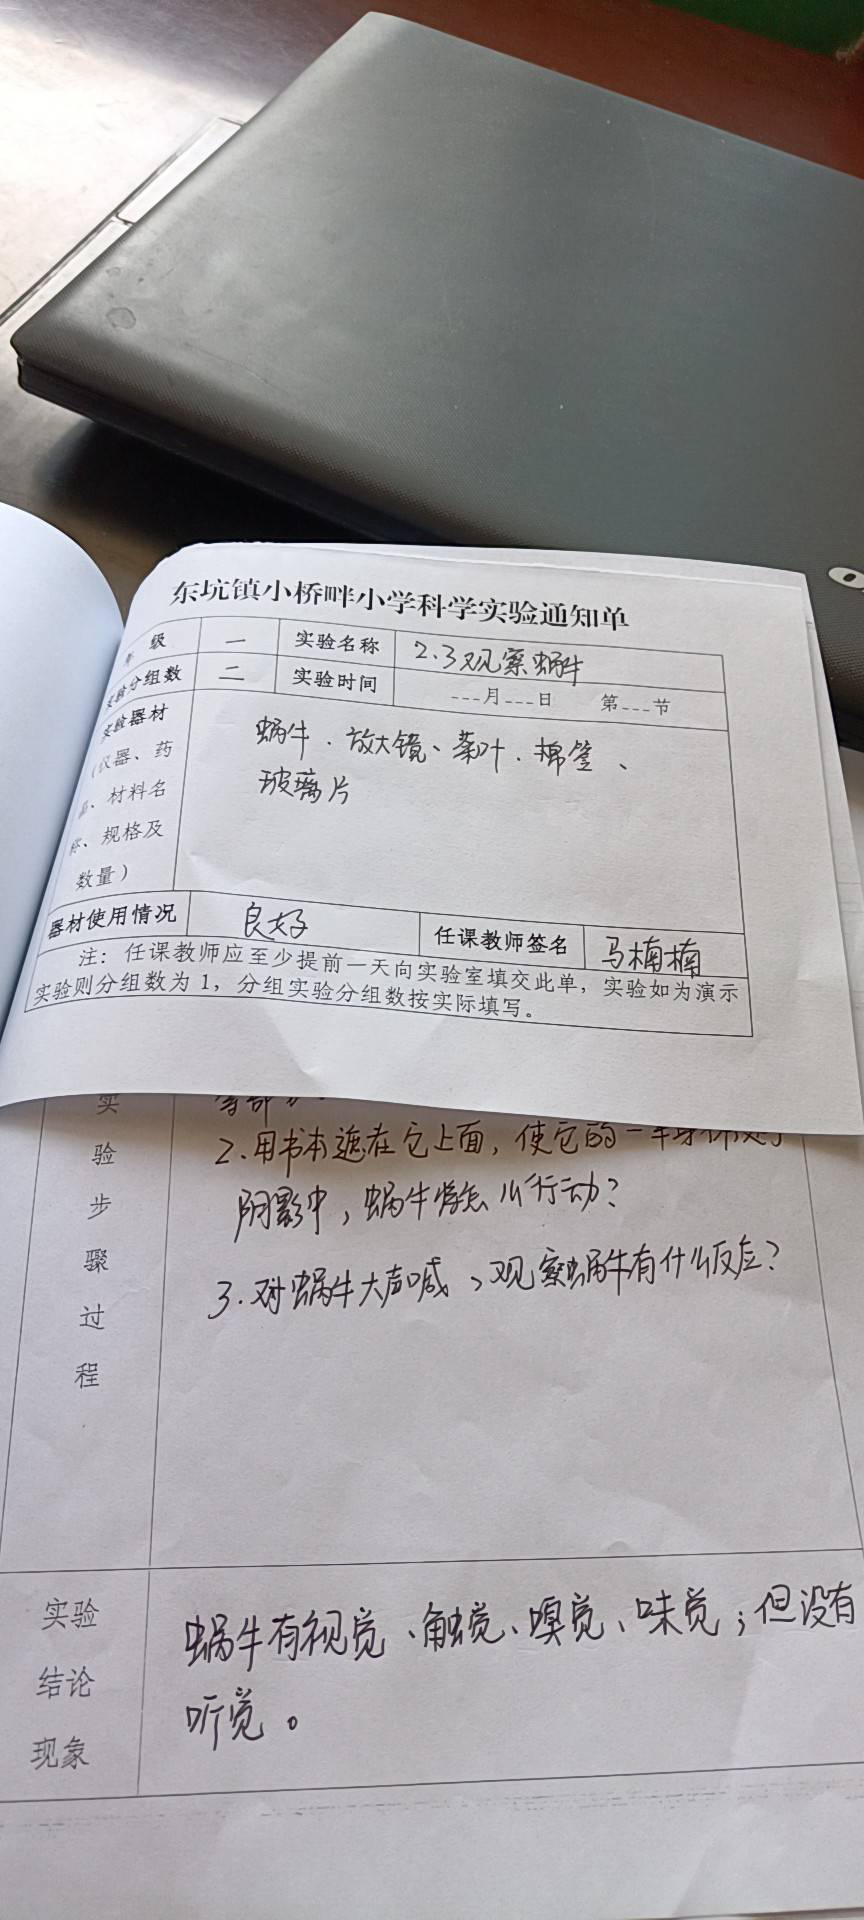 东坑镇小桥畔小学科学实验通知单
年 级 一 实验名称 2.3观察蜗牛
实验分组数 二 实验时间 ___月___日 第___节
实验器材
(仪器、药
品、材料名
称、规格及
数量)
蜗牛、放大镜、菜叶、棉签、
玻璃片
器材使用情况 良好 任课教师签名 马楠楠
注：任课教师应至少提前一天向实验室填交此单，实验如为演示
实验则分组数为1，分组实验分组数按实际填写。
实
验
步
骤
过
程
2.用书本遮在它上面，使它的一半身体处于
阴影中，蜗牛将怎么行动?
3.对蜗牛大声喊，观察蜗牛有什么反应?
实验
结论
现象
蜗牛有视觉、触觉、嗅觉、味觉；但没有
听觉。